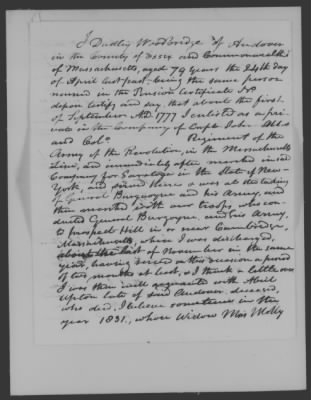 I Dudley Woodbridge of Andover
in the County of Essex and Commonwealth
of Massachusetts, aged 79 years the 24th day
of April last past - being the same person
named in the Pension Certificate
depose testify and say, that about the first
of September AD. 1777 I enlisted as a pri-
vate in the Company of Capt John Abbot
and Col. Regiment of the
Army of the Revolution, in the Massachusetts
Line, and immediately after marched in said
Company for Saratoga in the State of New-
York, and joined there & was at the taking
of General Burgoyne and his Army, and
then marched with our troops who con-
ducted General Burgoyne, and his Army,
to prospect Hill in or near Cambridge,
Massachusetts, where I was discharged,
about the last of November in the same
year, having served on this occasion a period
of two months at least, & I think a little over
I was then well acquainted with Abiel
Upton late of said Andover, deceased,
who died, I believe sometime in the
year 1831, whose Widow Mrs Molly